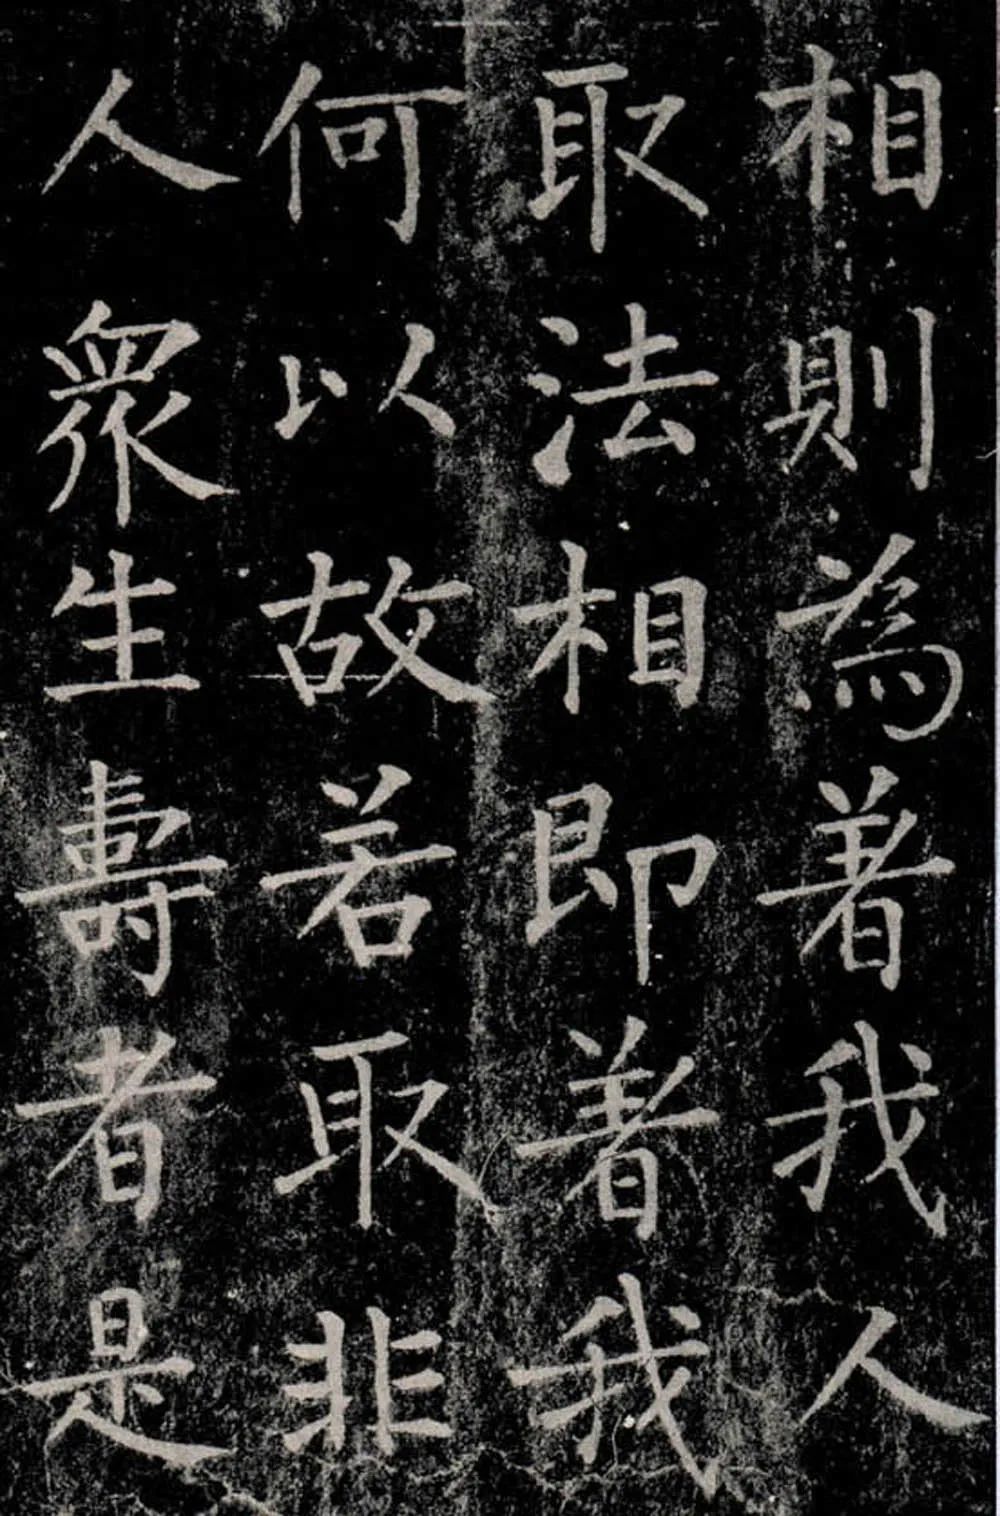 相則為著我人
取法相即著我
何以故若取非
人眾生壽者是